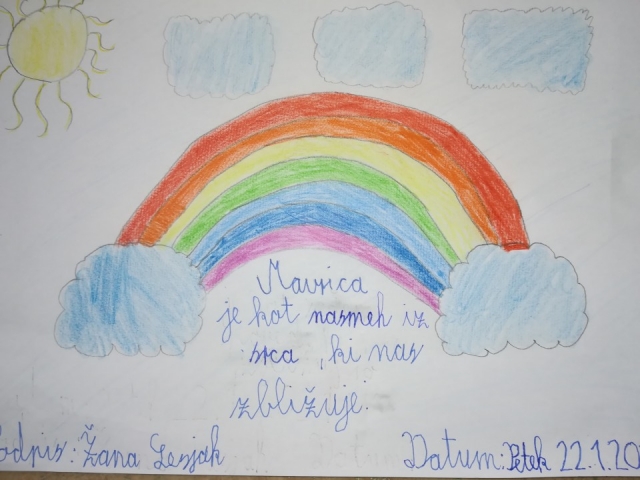 Mavrica
je kot nasmeh iz
srca, ki nas
zbližuje.
Podpis: Žana Lesjak Datum: Petek 22.1.20